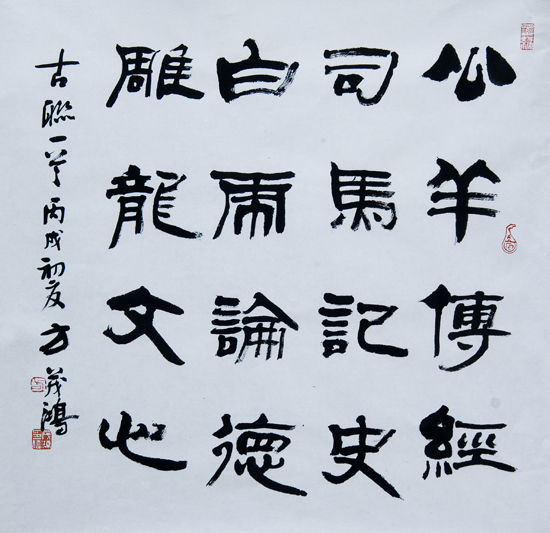 公羊傳經
司馬記史
白虎論德
雕龍文心
古聯一首丙戌初夏方茂鴻